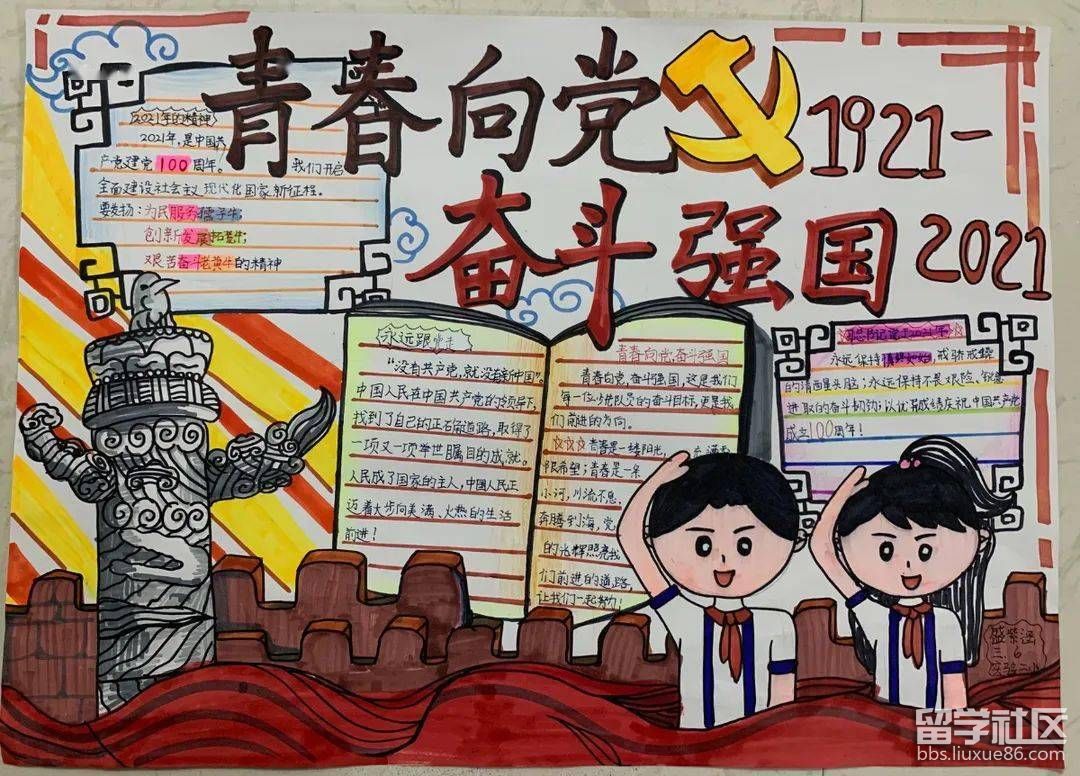 青春向党
1921-
奋斗强国
2021
2021年的精神
2021年,是中国共
产党建党100周年。 我们开启
全面建设社会主义现代化国家新征程。
要发扬:为民服务孺子牛
创新发展拓荒牛;
艰苦奋斗老黄牛的精神
永远跟 走
“没有共产党,就没有新中国”。
中国人民在中国共产党的领导下,
找到了自己的正确道路,取得了
一项又一项举世瞩目的成就。
人民成了国家的主人,中国人民正
迈着大步向美满、火热的生活
前进!
青春向党 奋斗强国
青春向党,奋斗强国,这是我们
每一位少先队员的奋斗目标,更是我
们前进的方向。
☆☆☆青春是一缕阳光,充满着
希望;青春是一朵
小河,川流不息,
奔腾到海,党
的光辉照亮我
们前进的道路,
让我们一起努力!
永远保持 ,戒骄戒躁
的清醒头脑;永远保持不畏艰险、锐意
进取的奋斗韧劲;以优异成绩庆祝中国共产党
成立100周年!
三.6
留学社区
bbs.liuxue86.com